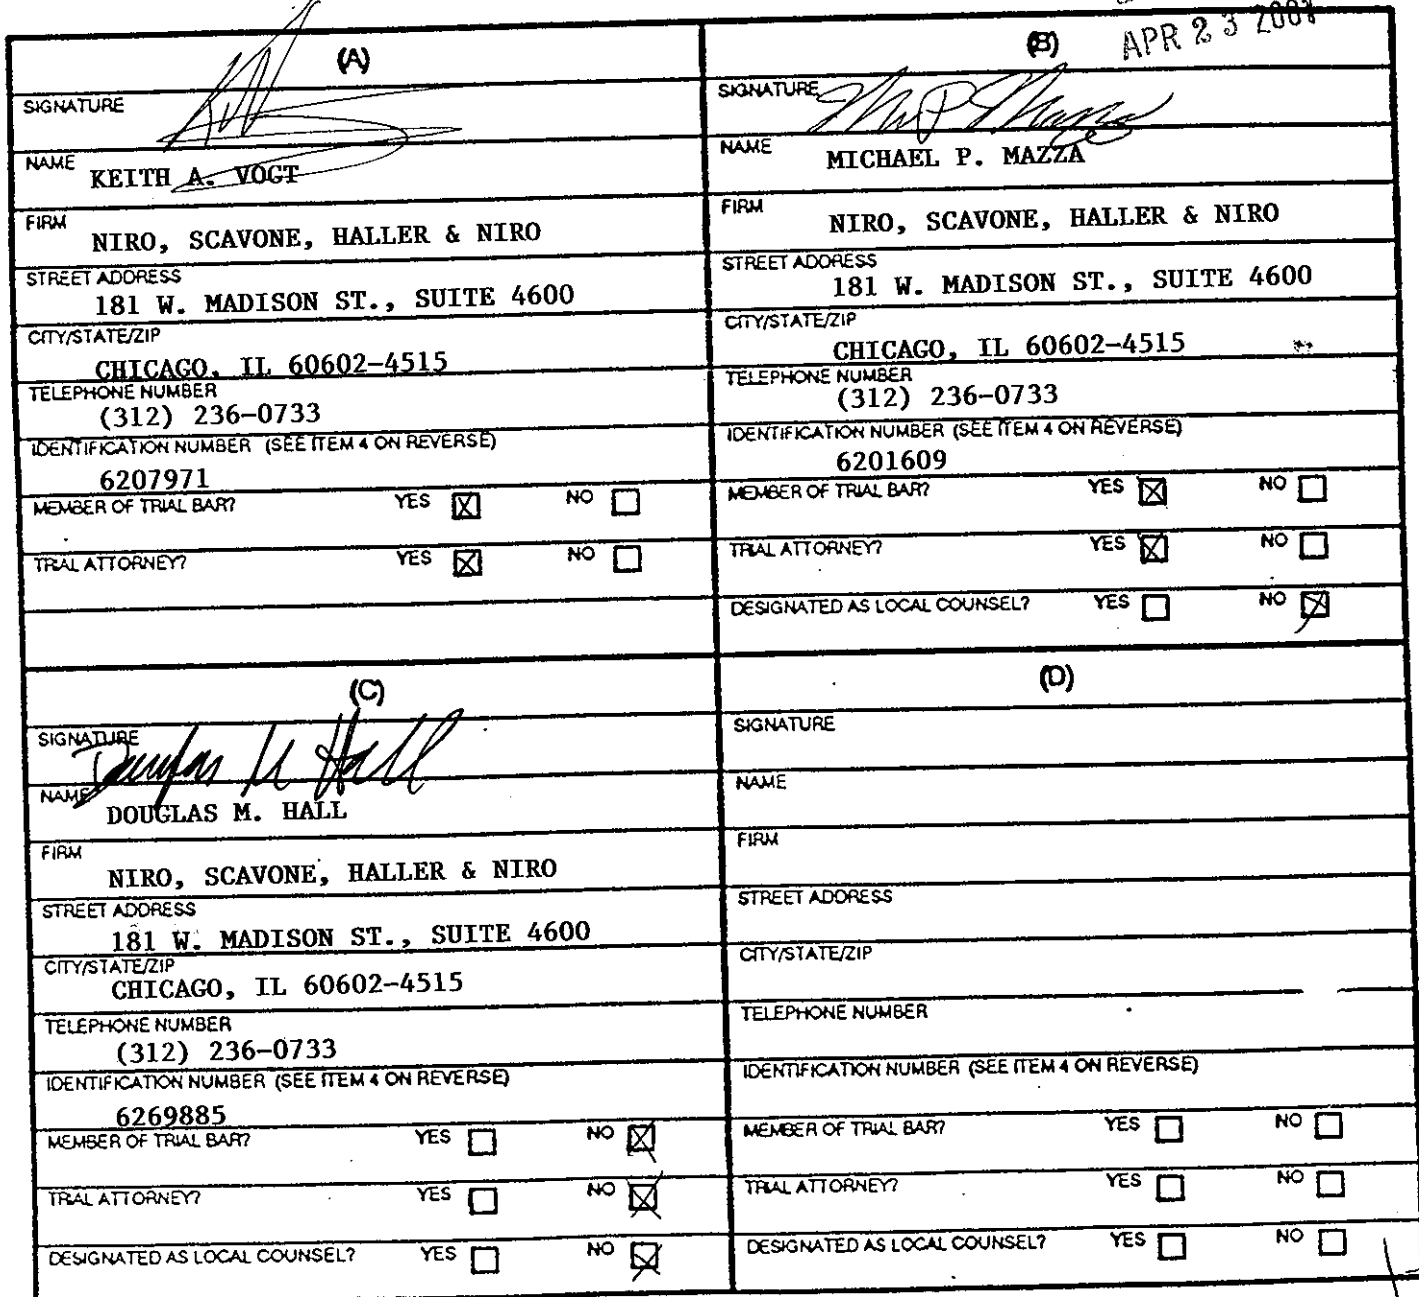 APR 23 2001
(A)
SIGNATURE
NAME
KEITH A. VOGT
FIRM
NIRO, SCAVONE, HALLER & NIRO
STREET ADDRESS
181 W. MADISON ST., SUITE 4600
CITY/STATE/ZIP
CHICAGO, IL 60602-4515
TELEPHONE NUMBER
(312) 236-0733
IDENTIFICATION NUMBER (SEE ITEM 4 ON REVERSE)
6207971
MEMBER OF TRIAL BAR? YES ☒ NO ☐
TRIAL ATTORNEY? YES ☒ NO ☐
(B)
SIGNATURE
NAME
MICHAEL P. MAZZA
FIRM
NIRO, SCAVONE, HALLER & NIRO
STREET ADDRESS
181 W. MADISON ST., SUITE 4600
CITY/STATE/ZIP
CHICAGO, IL 60602-4515
TELEPHONE NUMBER
(312) 236-0733
IDENTIFICATION NUMBER (SEE ITEM 4 ON REVERSE)
6201609
MEMBER OF TRIAL BAR? YES ☒ NO ☐
TRIAL ATTORNEY? YES ☒ NO ☐
DESIGNATED AS LOCAL COUNSEL? YES ☐ NO ☒
(C)
SIGNATURE
Douglas M Hall
NAME
DOUGLAS M. HALL
FIRM
NIRO, SCAVONE, HALLER & NIRO
STREET ADDRESS
181 W. MADISON ST., SUITE 4600
CITY/STATE/ZIP
CHICAGO, IL 60602-4515
TELEPHONE NUMBER
(312) 236-0733
IDENTIFICATION NUMBER (SEE ITEM 4 ON REVERSE)
6269885
MEMBER OF TRIAL BAR? YES ☐ NO ☒
TRIAL ATTORNEY? YES ☐ NO ☒
DESIGNATED AS LOCAL COUNSEL? YES ☐ NO ☒
(D)
SIGNATURE
NAME
FIRM
STREET ADDRESS
CITY/STATE/ZIP
TELEPHONE NUMBER
IDENTIFICATION NUMBER (SEE ITEM 4 ON REVERSE)
MEMBER OF TRIAL BAR? YES ☐ NO ☐
TRIAL ATTORNEY? YES ☐ NO ☐
DESIGNATED AS LOCAL COUNSEL? YES ☐ NO ☐